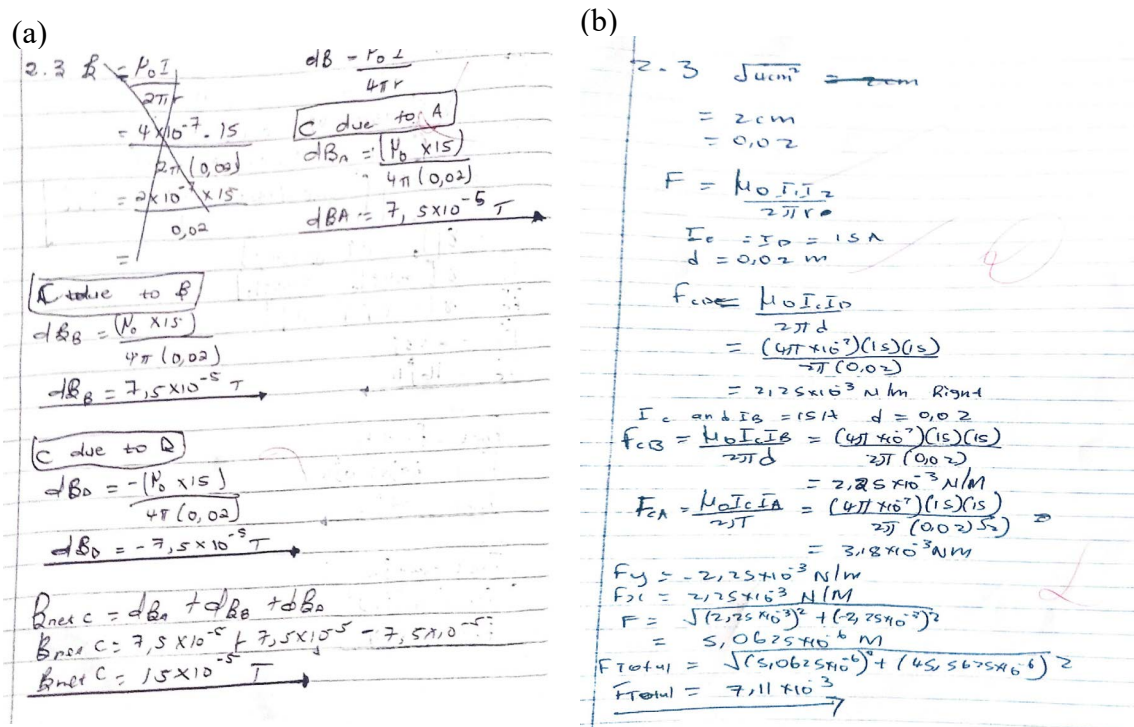 (a)
2.3 B = μ₀I / 2πr
= 4×10⁻⁷ . 15 / 2π(0,02)
= 2×10⁻⁷ × 15 / 0,02
=
dB = μ₀I / 4πr
C due to A
dB_A = (μ₀ × 15) / 4π(0,02)
dBA = 7,5×10⁻⁵ T
C due to B
dB_B = (μ₀ × 15) / 4π(0,02)
dB_B = 7,5×10⁻⁵ T
C due to D
dB_D = -(μ₀ × 15) / 4π(0,02)
dB_D = -7,5×10⁻⁵ T
Bnet C = dB_A + dB_B + dB_D
Bnet C = 7,5×10⁻⁵ + 7,5×10⁻⁵ - 7,5×10⁻⁵
Bnet C = 15×10⁻⁵ T
(b)
2.3 √4cm² = 2cm
= 2cm
= 0,02
F = μ₀I₁I₂ / 2πr
I_C = I_D = 15A
d = 0,02 m
F_CD = μ₀I_cI_D / 2πd
= (4π×10⁻⁷)(15)(15) / 2π(0,02)
= 2,25×10⁻³ N/m Right
I_C and I_B = 15A d = 0,02
F_CB = μ₀I_cI_B / 2πd = (4π×10⁻⁷)(15)(15) / 2π(0,02)
= 2,25×10⁻³ N/M
F_CA = μ₀I_cI_A / 2π = (4π×10⁻⁷)(15)(15) / 2π(0,02√2)
= 3,18×10⁻³ Nm
Fy = -2,25×10⁻³ N/m
Fx = 2,25×10⁻³ N/M
F = √(2,25×10⁻³)² + (-2,25×10⁻³)²
= 5,0625×10⁻⁶ M
FTotal = √(5,0625×10⁻⁶)² + (45,5625×10⁻⁶)²
FTotal = 7,11×10⁻³